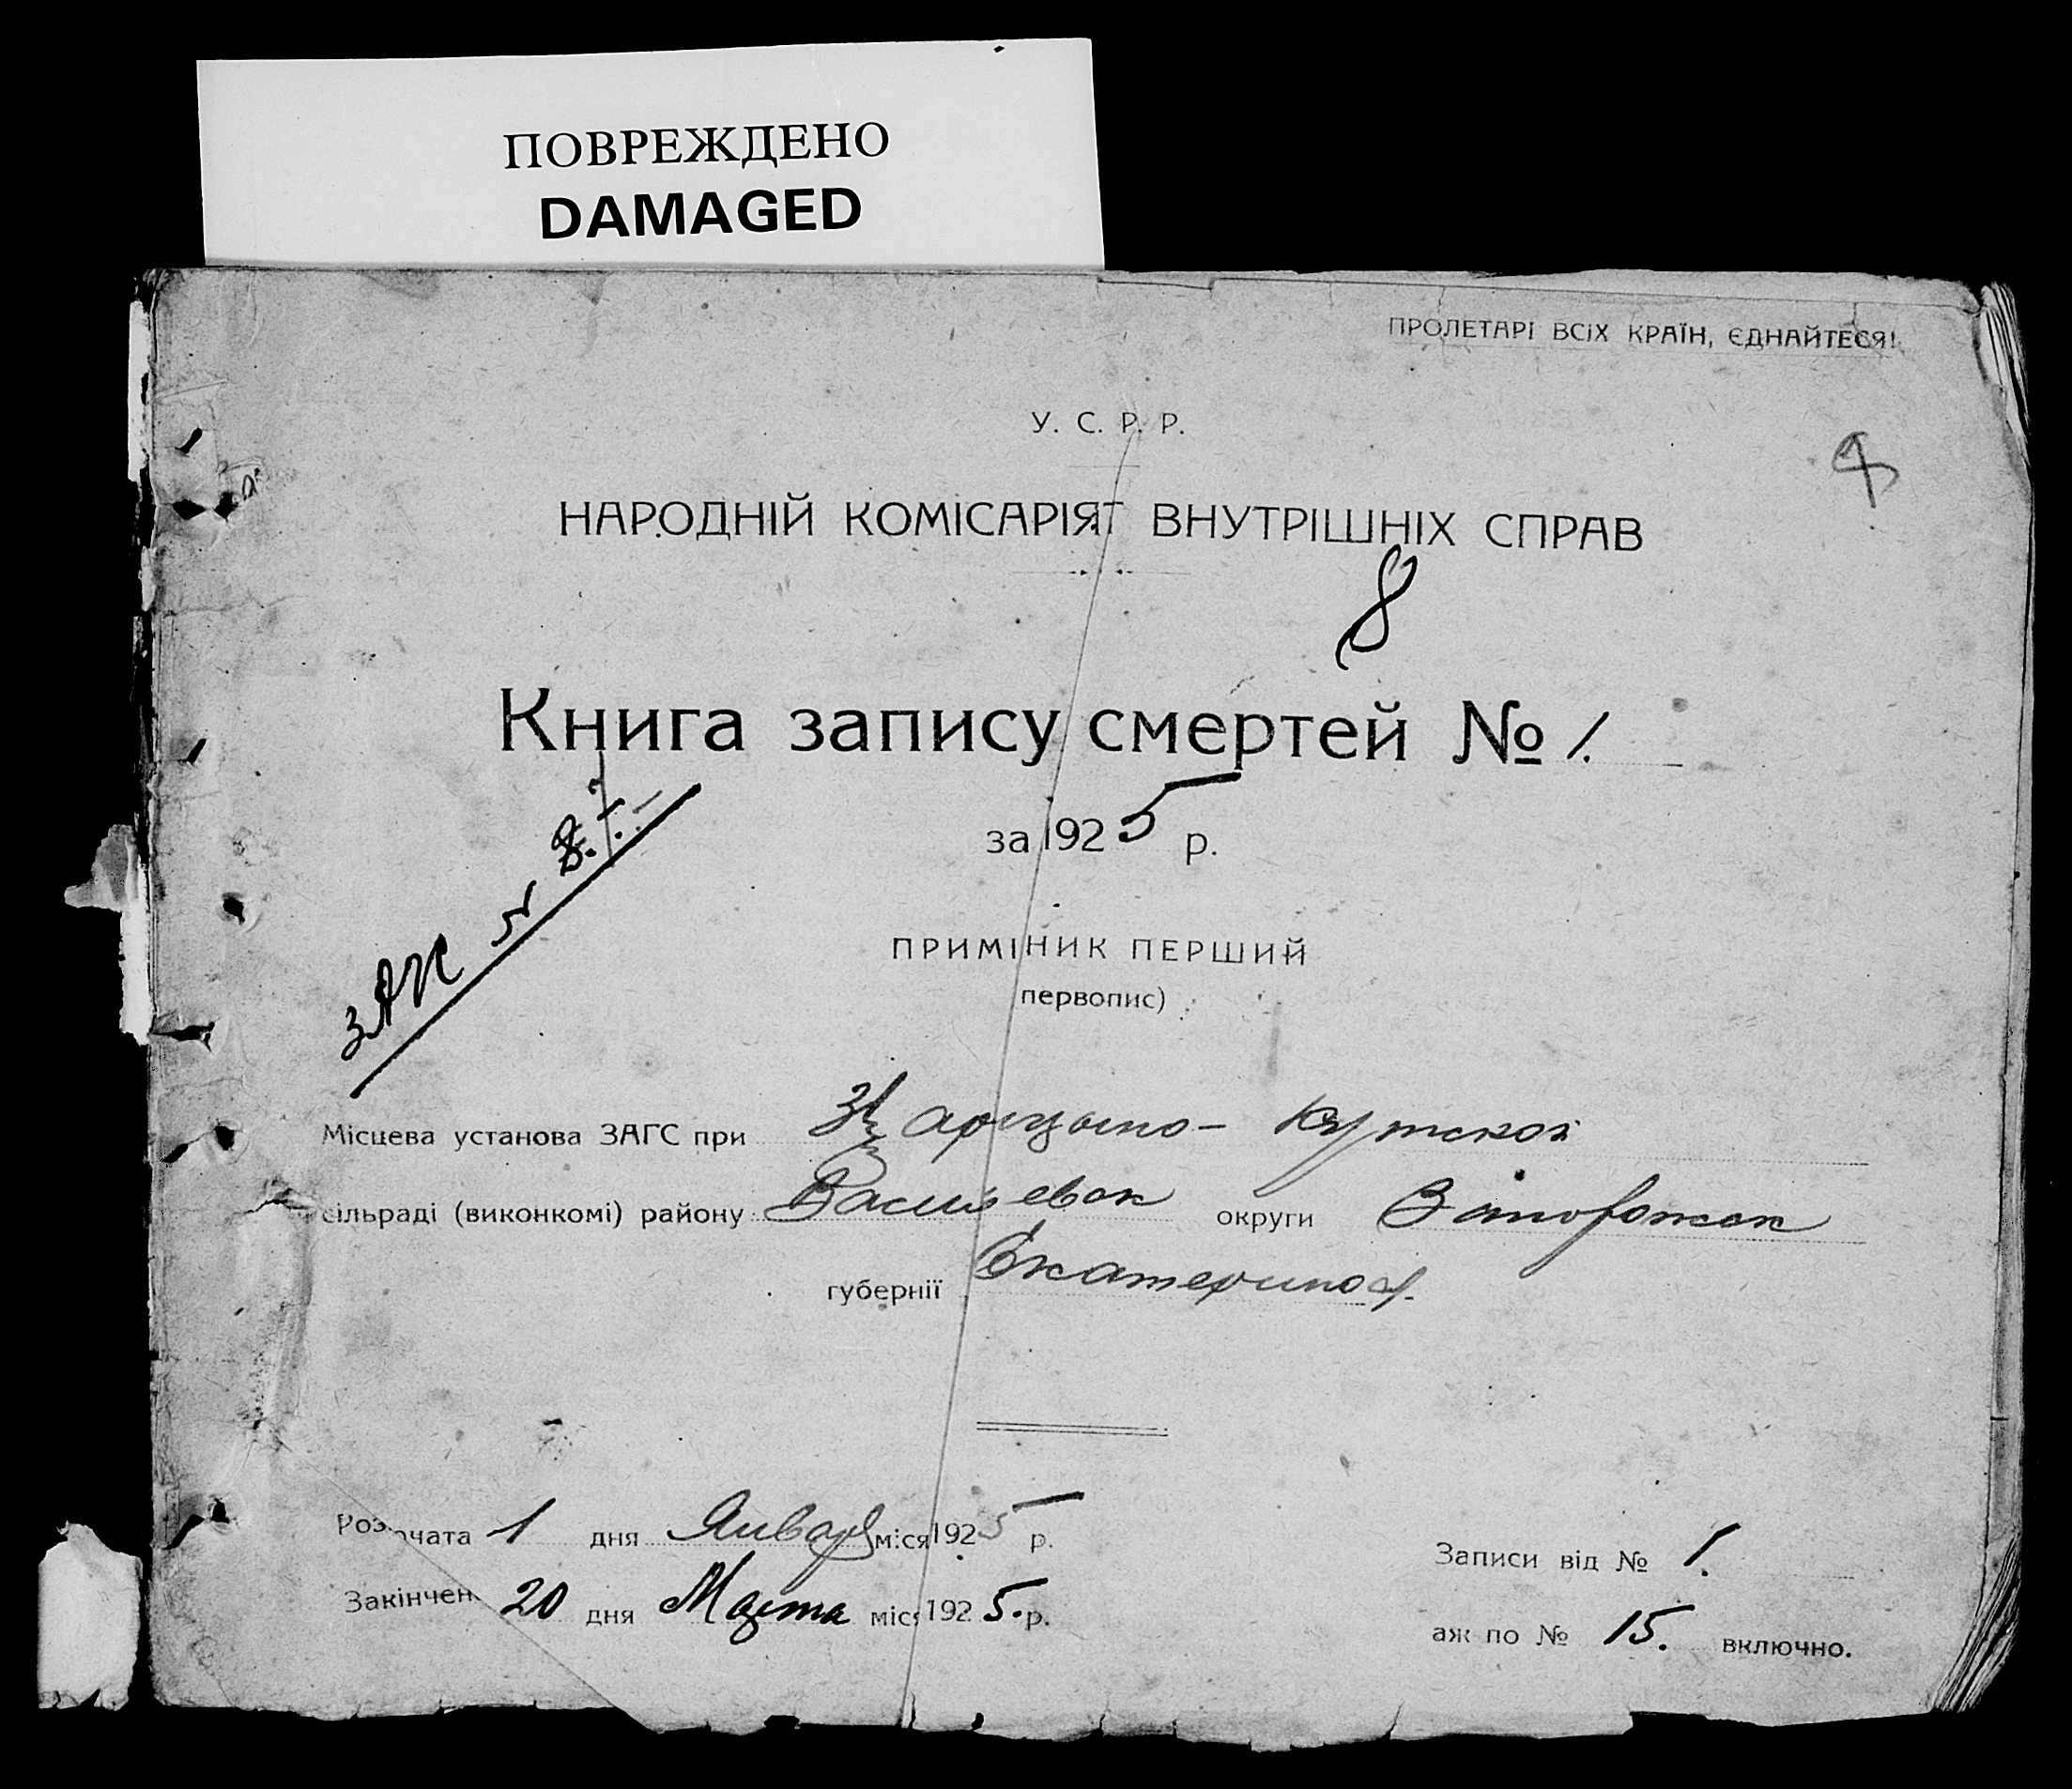 ПОВРЕЖДЕНО
DAMAGED
ПРОЛЕТАРІ ВСІХ КРАЇН, ЄДНАЙТЕСЯ!
У. С. Р. Р.
НАРОДНІЙ КОМІСАРІЯТ ВНУТРІШНІХ СПРАВ
8
Книга запису смертей № 1.
за 1925 р.
ПРИМІНИК ПЕРШИЙ
первопис)
Місцева установа ЗАГС при Кутской
сільраді (виконкомі) району Васильевск округи Запорожск
губернії Екатериносл.
Розпочата 1 дня Январ міся 1925 р.
Закінчен. 20 дня Марта міся 1925. р.
Записи від № 1.
аж по № 15. включно.